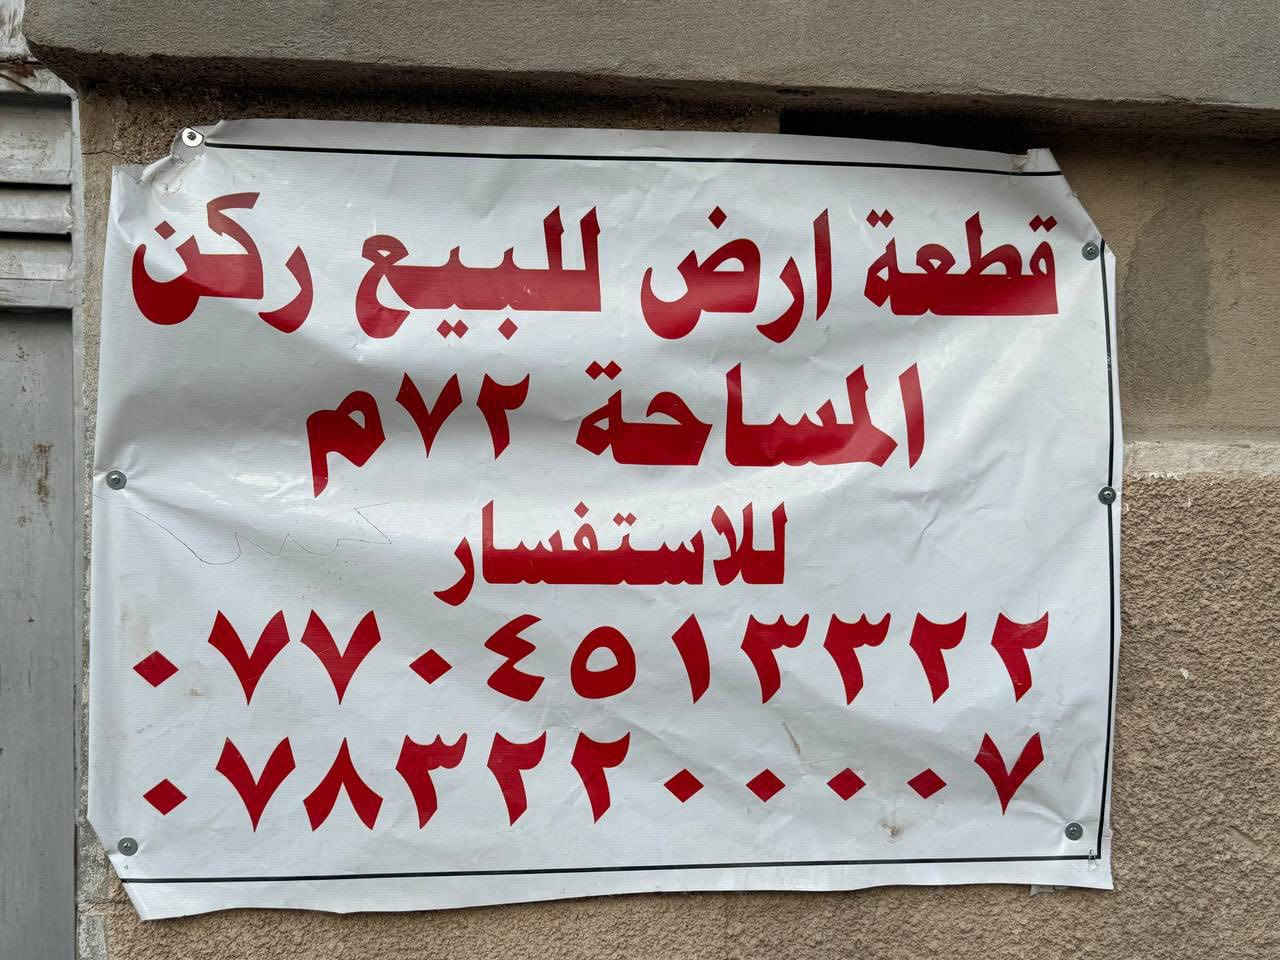 قطعة ارض للبيع ركن
المساحة ٧٢م
للاستفسار
٠٧٧٠٤٥١٣٣٢٢
٠٧٨٣٢٢٠٠٠٠٧